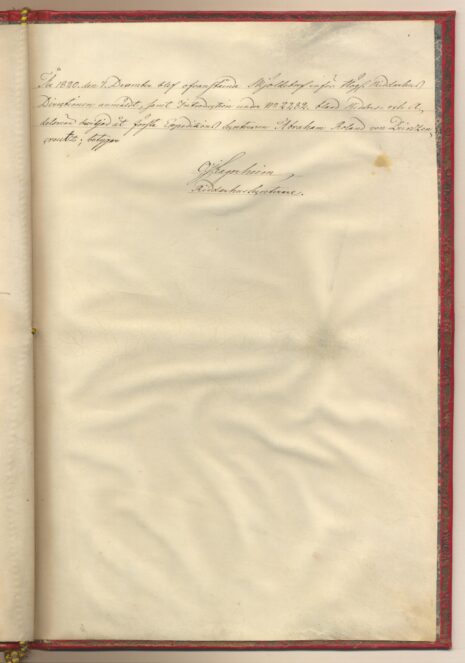 År 1820. den 7. December blef ofvanstående Sköldebref inför Högl. Ridderhus
Directionen anmäldt, samt Introduction under No 2282. bland Ridders- och A-
delsmän beviljad åt förste Expeditions Secreteraren Abraham Roland von
creutz; betygar
Ridderhus Secreterare.